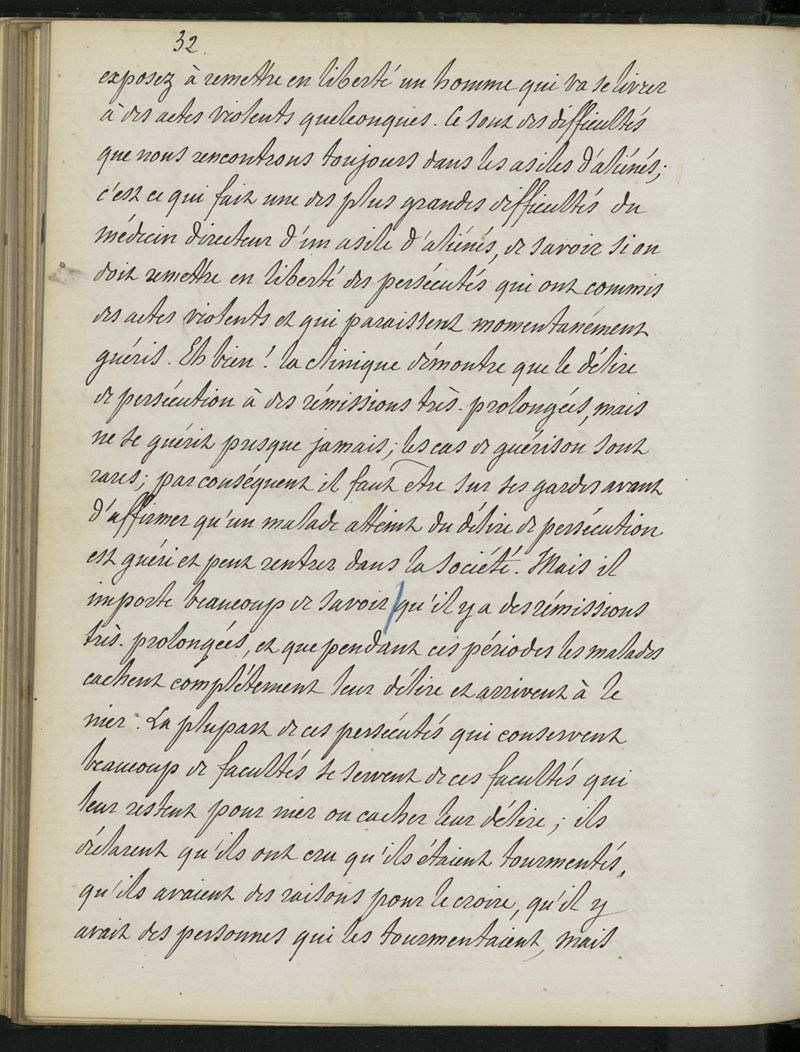 32.
exposez à remettre en liberté un homme qui va se livrer
à des actes violents quelconques. Ce sont des difficultés
que nous rencontrons toujours dans les asiles d'aliénés;
c'est ce qui fait une des plus grandes difficultés du
médecin directeur d'un asile d'aliénés, de savoir si on
doit remettre en liberté des persécutés qui ont commis
des actes violents et qui paraissent momentanément
guéris. Eh bien! la clinique démontre que le délire
de persécution à des rémissions très-prolongées, mais
ne se guérit presque jamais; les cas de guérison sont
rares; par conséquent il faut être sur ses gardes avant
d'affirmer qu'un malade atteint du délire de persécution
est guéri et peut rentrer dans la société. Mais il
importe beaucoup de savoir/qu'il y a des rémissions
très-prolongées, et que pendant ces périodes les malades
cachent complétement leur délire et arrivent à le
nier. La plupart de ces persécutés qui conservent
beaucoup de facultés se servent de ces facultés qui
leur restent pour nier ou cacher leur délire; ils
déclarent qu'ils ont cru qu'ils étaient tourmentés,
qu'ils avaient des raisons pour le croire, qu'il y
avait des personnes qui les tourmentaient, mais